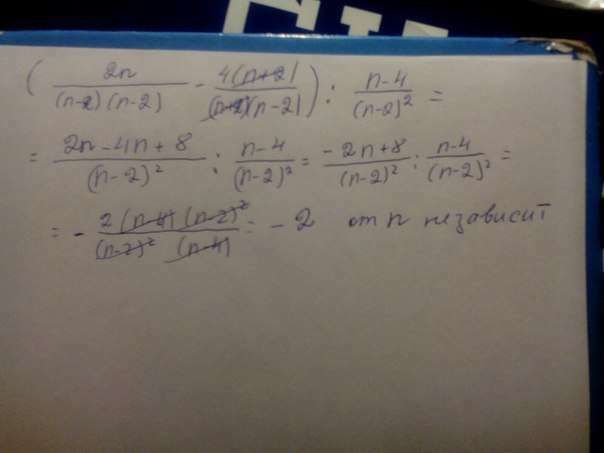 ( 2n / (n-2)(n-2) - 4(n+2) / (n+2)(n-2) ) : n-4 / (n-2)² =
= 2n-4n+8 / (n-2)² : n-4 / (n-2)² = -2n+8 / (n-2)² : n-4 / (n-2)² =
= - 2(n-4)(n-2)² / (n-2)² (n-4) = -2 от n независит